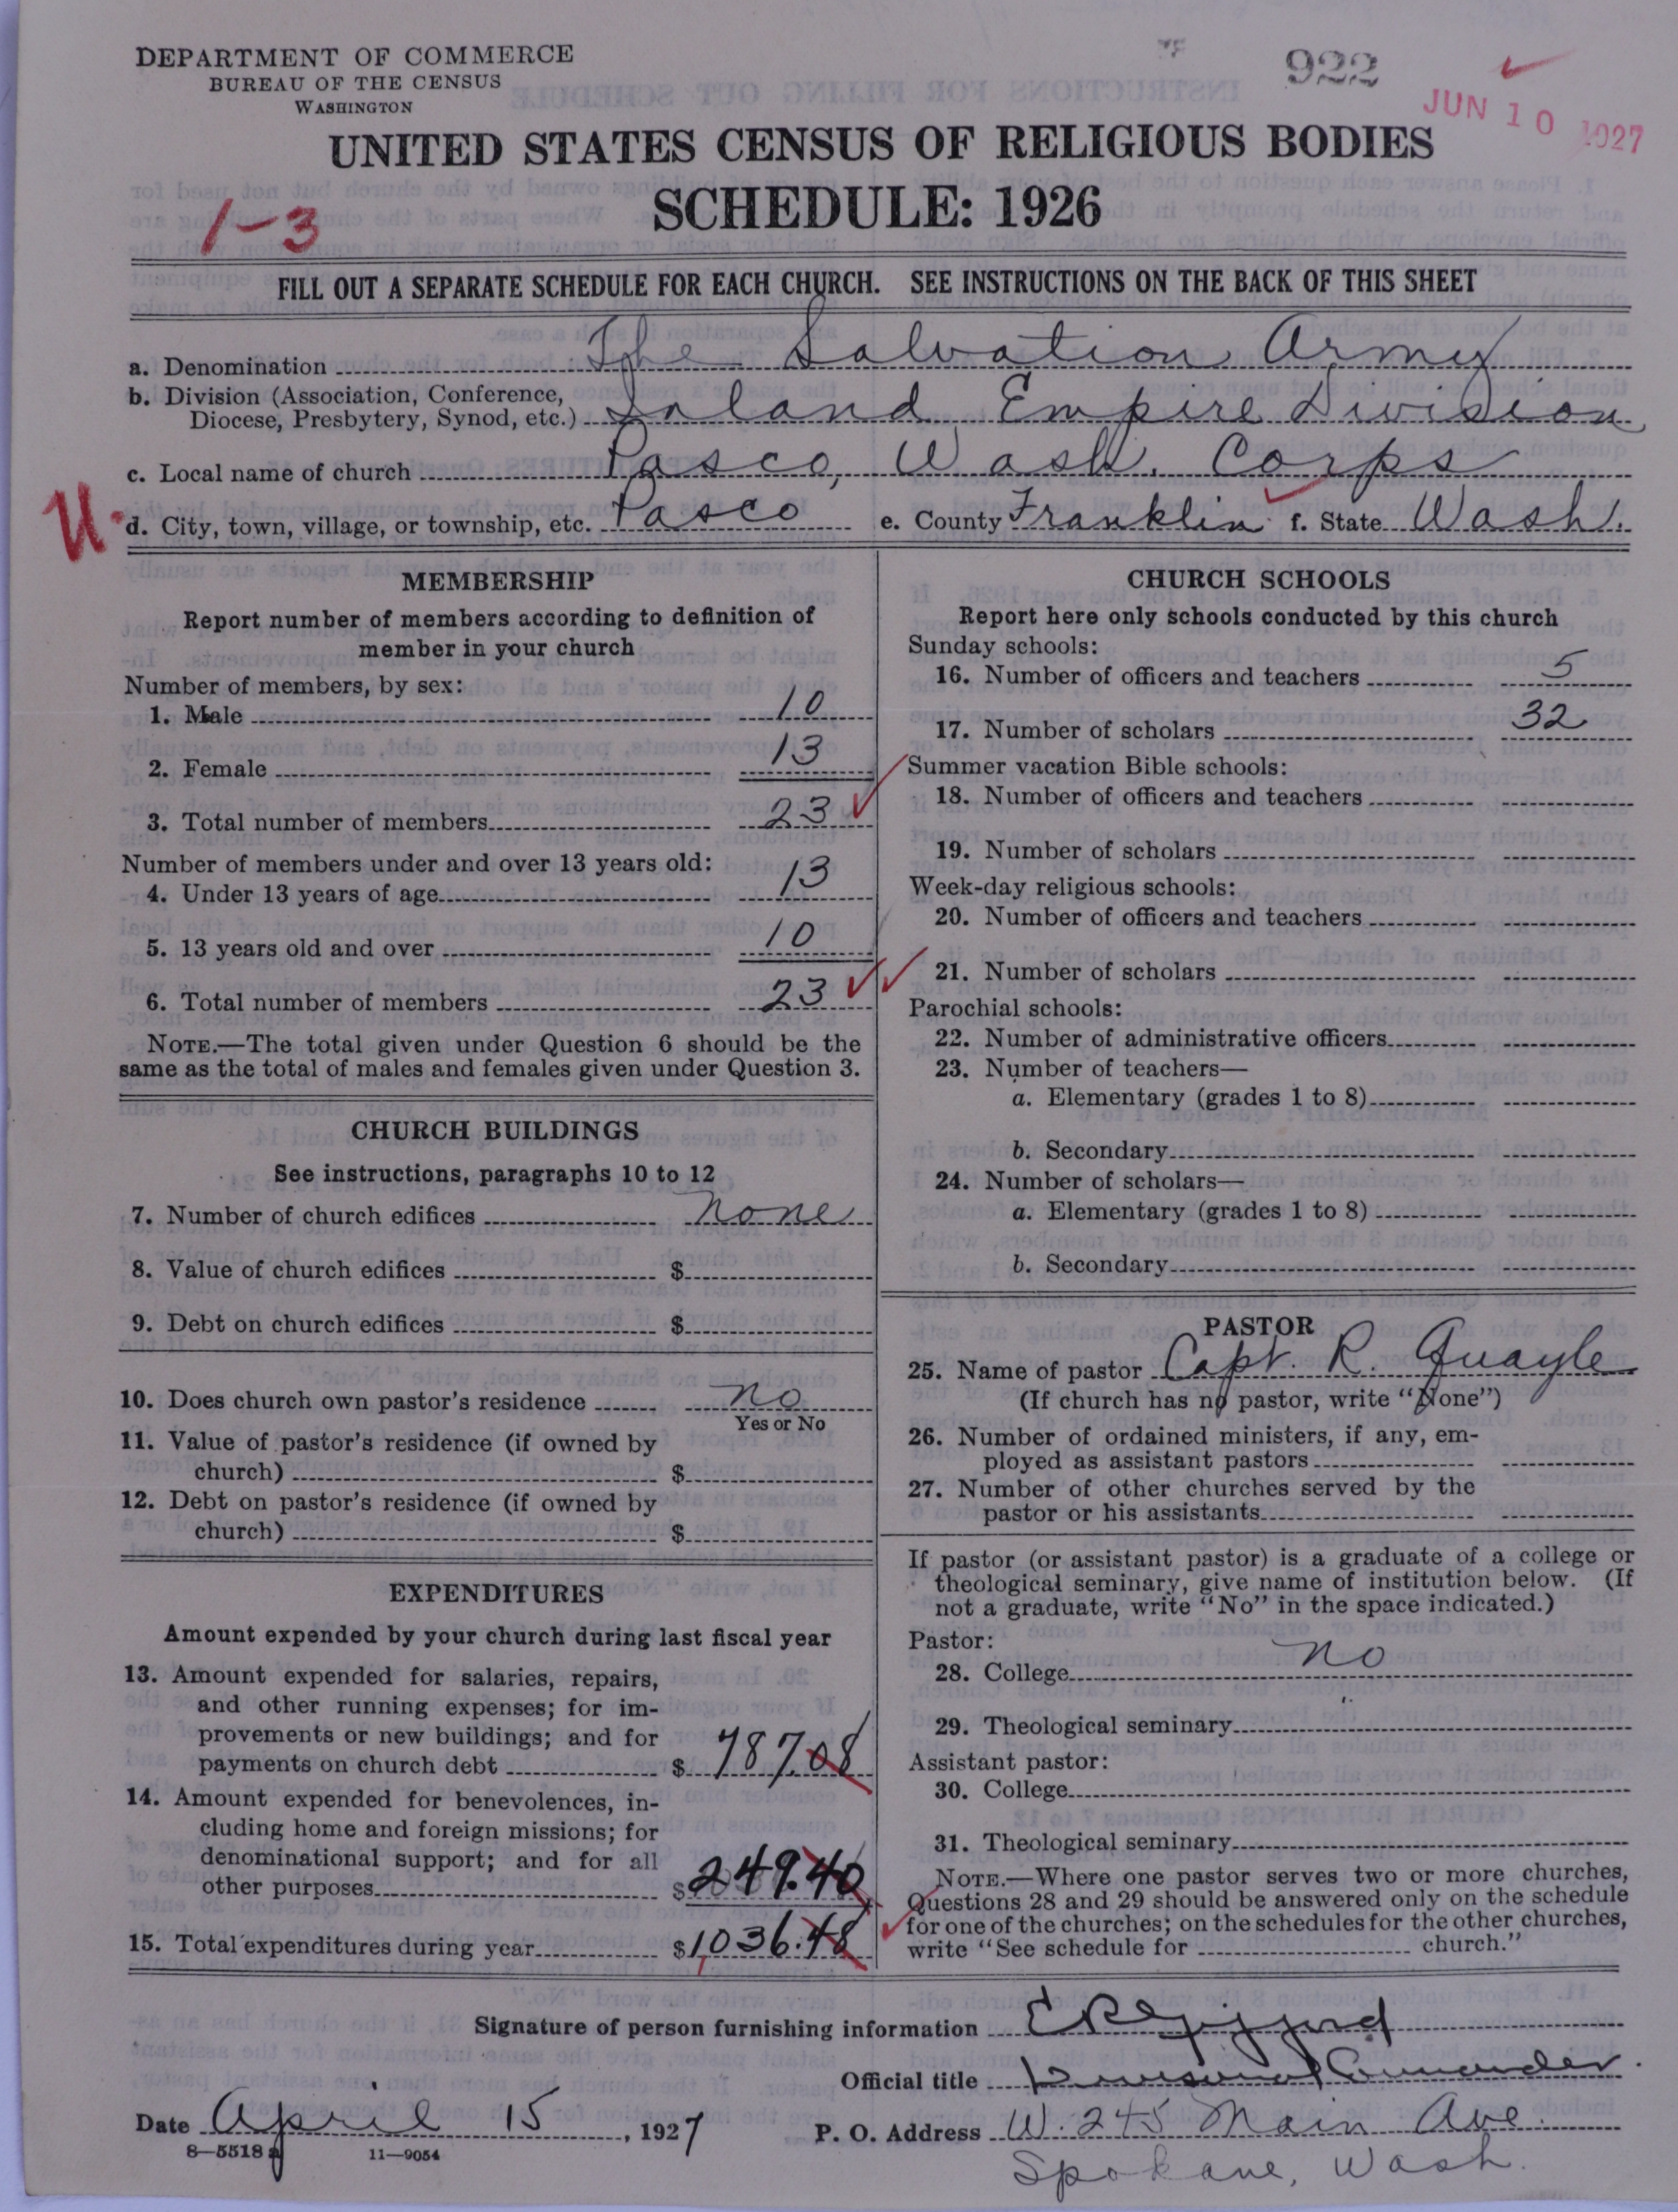 DEPARTMENT OF COMMERCE
BUREAU OF THE CENSUS
WASHINGTON
922
JUN 10 1927
UNITED STATES CENSUS OF RELIGIOUS BODIES
SCHEDULE: 1926
1-3
FILL OUT A SEPARATE SCHEDULE FOR EACH CHURCH. SEE INSTRUCTIONS ON THE BACK OF THIS SHEET
a. Denomination The Salvation Army
b. Division (Association, Conference,
Diocese, Presbytery, Synod, etc.) Inland Empire Division
c. Local name of church Pasco, Wash. Corps
U
d. City, town, village, or township, etc. Pasco e. County Franklin f. State Wash.
MEMBERSHIP
Report number of members according to definition of
member in your church
Number of members, by sex:
1. Male 10
2. Female 13
3. Total number of members 23
Number of members under and over 13 years old:
4. Under 13 years of age 13
5. 13 years old and over 10
6. Total number of members 23
NOTE.—The total given under Question 6 should be the
same as the total of males and females given under Question 3.
CHURCH BUILDINGS
See instructions, paragraphs 10 to 12
7. Number of church edifices none
8. Value of church edifices $
9. Debt on church edifices $
10. Does church own pastor's residence no
Yes or No
11. Value of pastor's residence (if owned by
church) $
12. Debt on pastor's residence (if owned by
church) $
EXPENDITURES
Amount expended by your church during last fiscal year
13. Amount expended for salaries, repairs,
and other running expenses; for im-
provements or new buildings; and for
payments on church debt $ 787.08
14. Amount expended for benevolences, in-
cluding home and foreign missions; for
denominational support; and for all
other purposes $ 249.40
15. Total expenditures during year $1,036.48
CHURCH SCHOOLS
Report here only schools conducted by this church
Sunday schools:
16. Number of officers and teachers 5
17. Number of scholars 32
Summer vacation Bible schools:
18. Number of officers and teachers
19. Number of scholars
Week-day religious schools:
20. Number of officers and teachers
21. Number of scholars
Parochial schools:
22. Number of administrative officers
23. Number of teachers—
a. Elementary (grades 1 to 8)
b. Secondary
24. Number of scholars—
a. Elementary (grades 1 to 8)
b. Secondary
PASTOR
25. Name of pastor Capt. R. Quayle
(If church has no pastor, write "None")
26. Number of ordained ministers, if any, em-
ployed as assistant pastors
27. Number of other churches served by the
pastor or his assistants
If pastor (or assistant pastor) is a graduate of a college or
theological seminary, give name of institution below. (If
not a graduate, write "No" in the space indicated.)
Pastor:
28. College no
29. Theological seminary
Assistant pastor:
30. College
31. Theological seminary
NOTE.—Where one pastor serves two or more churches,
Questions 28 and 29 should be answered only on the schedule
for one of the churches; on the schedules for the other churches,
write "See schedule for church."
Signature of person furnishing information
Official title Divisional Commander.
Date April 15, 1927 P. O. Address W. 245 Main Ave.
8—5518a 11—9054
Spokane, Wash.